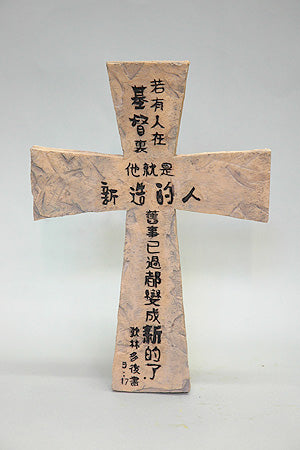 若有人在
基督裏
他就是
新造的人
舊事已過都變成新的了
歌林多後書
5:17